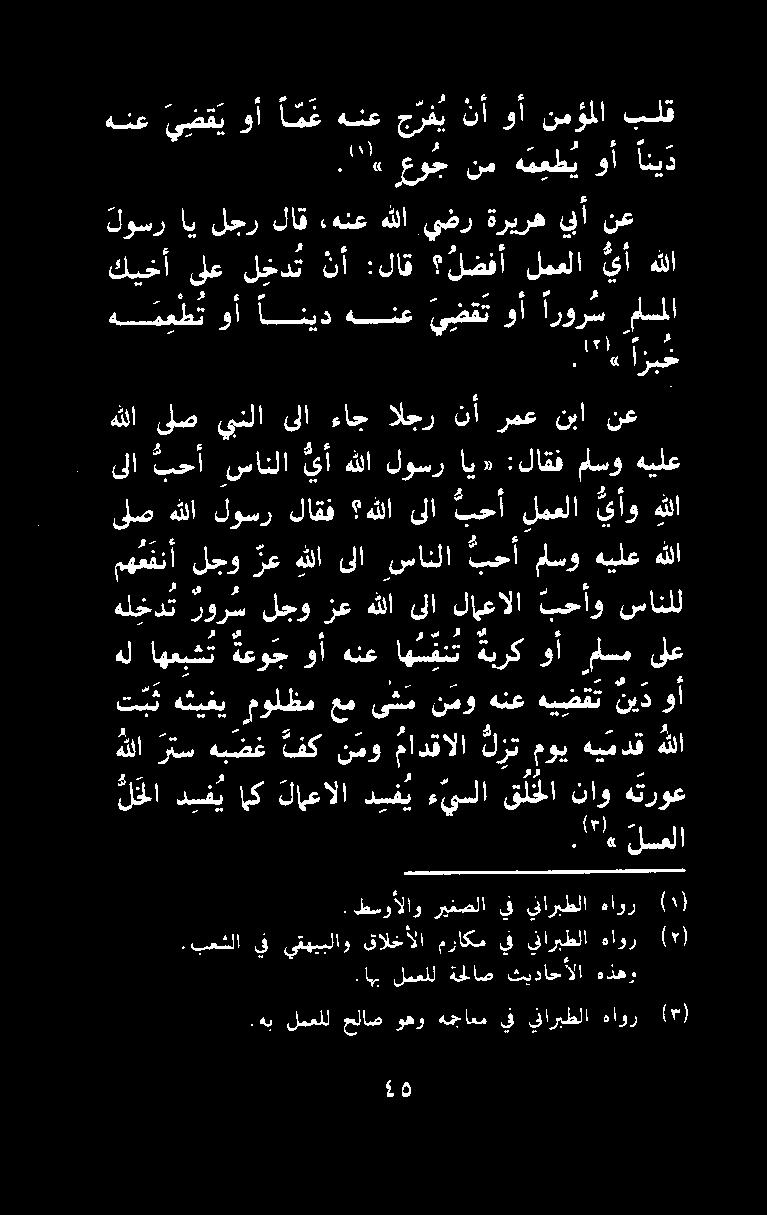 قلب المؤمن أو أنْ يُفرّج عنه غَمّاً أو يَقضِيَ عنه
دَيناً أو يُطعِمَه من جُوعٍ »(١).
عن أبي هريرة رضي الله عنه، قال رجل يا رسولَ
الله أيُّ العمل أفضلُ؟ قال: أنْ تُدخِل على أخيك
المسلمِ سُروراً أو تَقضِيَ عنه ديناً أو تُطْعِمَه
خُبزاً »(٢).
عن ابن عمر أن رجلا جاء الى النبي صلى الله
عليه وسلم فقال: « يا رسول الله أيُّ الناسِ أحبُّ الى
اللهِ وأيُّ العملِ أحبُّ الى الله؟ فقال رسولُ الله صلى
الله عليه وسلم أحبُّ الناسِ الى اللهِ عزّ وجل أنفَعُهم
للناس وأحبّ الاعمال الى الله عز وجل سُرورٌ تُدخله
على مسلمٍ أو كربةٌ تُنفِّسُها عنه أو جَوعةٌ تُشبِعها له
أو دَينٌ تَقضِيه عنه ومَن مَشى مع مظلومٍ يغيثه ثَبّت
اللهُ قدمَيه يوم تزِلُّ الاقدامُ ومَن كفَّ غضَبه سترَ اللهُ
عورتَه وان الخُلُق السيّء يُفسِد الاعمالَ كما يُفسِد الخَلُّ
العسلَ »(٣).
(١) رواه الطبراني في الصغير والأوسط.
(٢) رواه الطبراني في مكارم الأخلاق والبيهقي في الشعب.
وهذه الأحاديث صالحة للعمل بها.
(٣) رواه الطبراني في معاجمه وهو صالح للعمل به.
٤٥